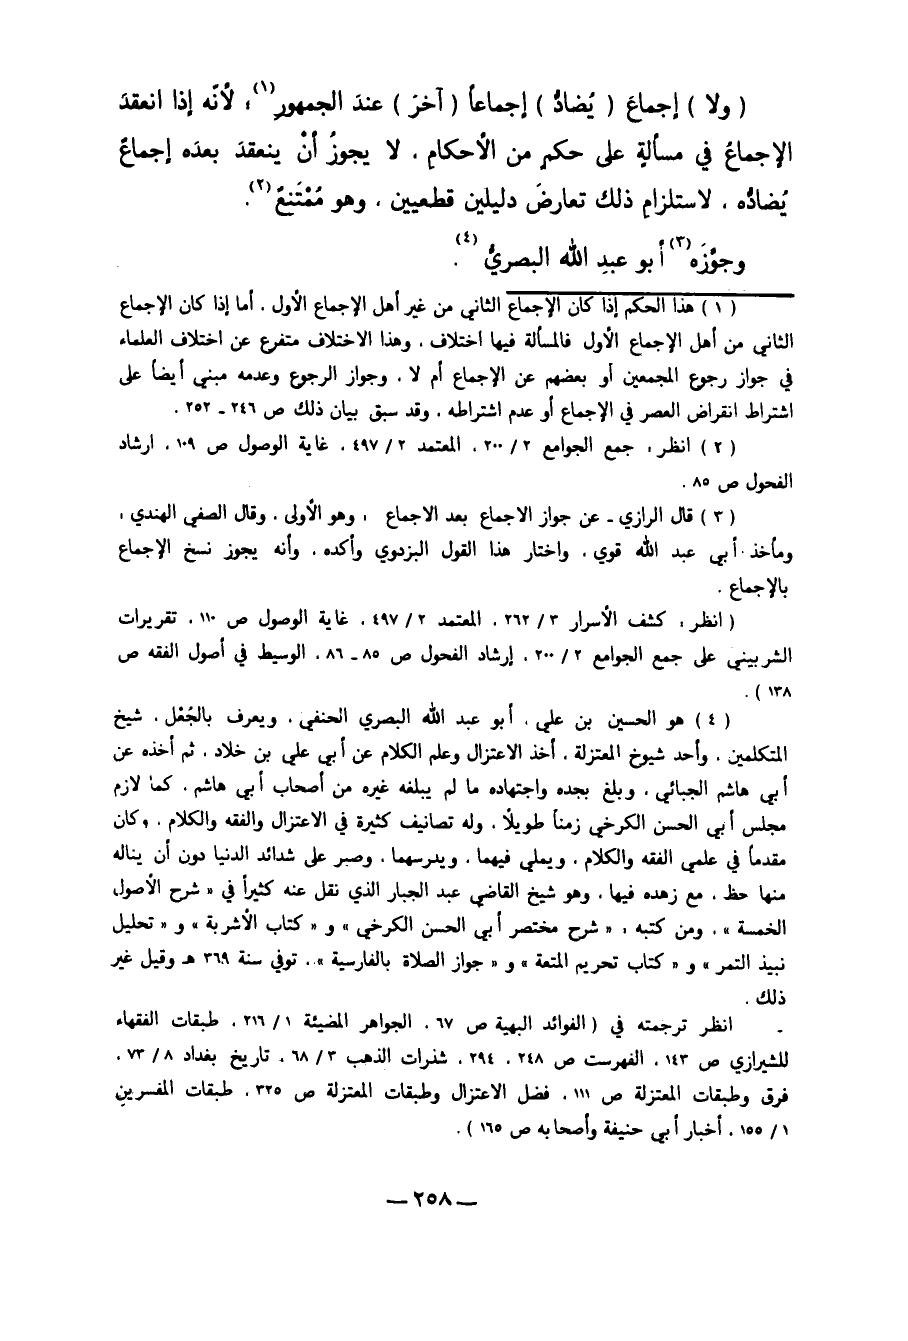 ( ولا ) إجماعَ ( يُضادُّ ) إجماعاً ( آخرَ ) عندَ الجمهورِ(١)؛ لأنّه إذا انعقدَ
الإجماعُ في مسألةٍ على حكمٍ من الأحكامِ ، لا يجوزُ أنْ ينعقدَ بعدَه إجماعٌ
يُضادُّه ، لاستلزامِ ذلك تعارضَ دليلين قطعيين ، وهو مُمْتَنعٌ(٢).
وجوَّزَه(٣) أبو عبدِ الله البصريُّ (٤) .
( ١ ) هذا الحكم إذا كان الإجماع الثاني من غير أهل الإجماع الأول ، أما إذا كان الإجماع
الثاني من أهل الإجماع الأول فالمسألة فيها اختلاف ، وهذا الاختلاف متفرع عن اختلاف العلماء
في جواز رجوع المجمعين أو بعضهم عن الإجماع أم لا ، وجواز الرجوع وعدمه مبني أيضاً على
اشتراط انقراض العصر في الإجماع أو عدم اشتراطه ، وقد سبق بيان ذلك ص ٢٤٦ ـ ٢٥٢ .
( ٢ ) انظر : جمع الجوامع ٢ / ٢٠٠ ، المعتمد ٢ / ٤٩٧ ، غاية الوصول ص ١٠٩ ، ارشاد
الفحول ص ٨٥ .
( ٣ ) قال الرازي ـ عن جواز الاجماع بعد الاجماع : وهو الأولى ، وقال الصفي الهندي :
ومأخذ أبي عبد الله قوي ، واختار هذا القول البزدوي وأكده ، وأنه يجوز نسخ الإجماع
بالإجماع .
( انظر : كشف الأسرار ٣ / ٢٦٢ ، المعتمد ٢ / ٤٩٧ ، غاية الوصول ص ١١٠ ، تقريرات
الشربيني على جمع الجوامع ٢ / ٢٠٠ ، إرشاد الفحول ص ٨٥ ـ ٨٦ ، الوسيط في أصول الفقه ص
١٣٨ ) .
( ٤ ) هو الحسين بن علي ، أبو عبد الله البصري الحنفي ، ويعرف بالجُعْل ، شيخ
المتكلمين ، وأحد شيوخ المعتزلة ، أخذ الاعتزال وعلم الكلام عن أبي علي بن خلاد ، ثم أخذه عن
أبي هاشم الجبائي ، وبلغ بجده واجتهاده ما لم يبلغه غيره من أصحاب أبي هاشم ، كما لازم
مجلس أبي الحسن الكرخي زمناً طويلًا ، وله تصانيف كثيرة في الاعتزال والفقه والكلام ، وكان
مقدماً في علمي الفقه والكلام ، ويملي فيهما ، ويدرسهما ، وصبر على شدائد الدنيا دون أن يناله
منها حظ ، مع زهده فيها ، وهو شيخ القاضي عبد الجبار الذي نقل عنه كثيراً في « شرح الأصول
الخمسة » ، ومن كتبه : « شرح مختصر أبي الحسن الكرخي » و « كتاب الأشربة » و « تحليل
نبيذ التمر » و « كتاب تحريم المتعة » و « جواز الصلاة بالفارسية » ، توفي سنة ٣٦٩ هـ وقيل غير
ذلك .
ـ انظر ترجمته في ( الفوائد البهية ص ٦٧ ، الجواهر المضيئة ١ / ٢١٦ ، طبقات الفقهاء
للشيرازي ص ١٤٣ ، الفهرست ص ٢٤٨ ، ٢٩٤ ، شذرات الذهب ٣ / ٦٨ ، تاريخ بغداد ٨ / ٧٣ ،
فرق وطبقات المعتزلة ص ١١١ ، فضل الاعتزال وطبقات المعتزلة ص ٣٢٥ ، طبقات المفسرين
١ / ١٥٥ ، أخبار أبي حنيفة وأصحابه ص ١٦٥ ) .
— ٢٥٨ —